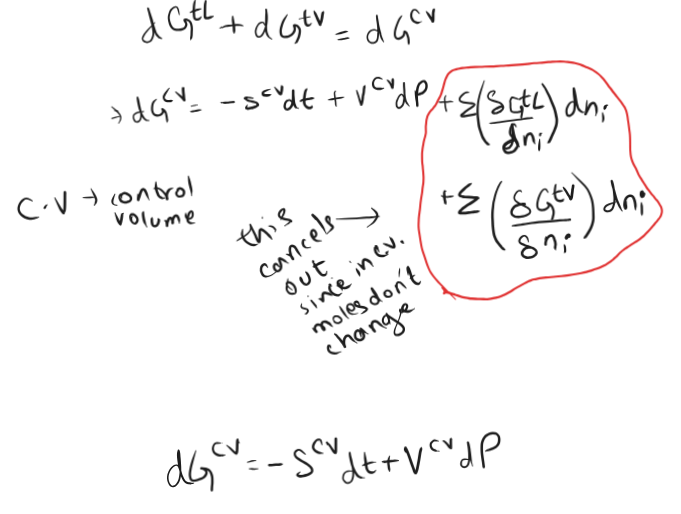 dG^tL + dG^tV = dG^CV
→ dG^CV = -S^CV dt + V^CV dP + Σ(δG^tL/δn_i) dn_i
+Σ(δG^tV/δn_i) dn_i
C.V → control
volume
this →
cancels
out
since in cv.
moles don't
change
dG^CV = -S^CV dt + V^CV dP